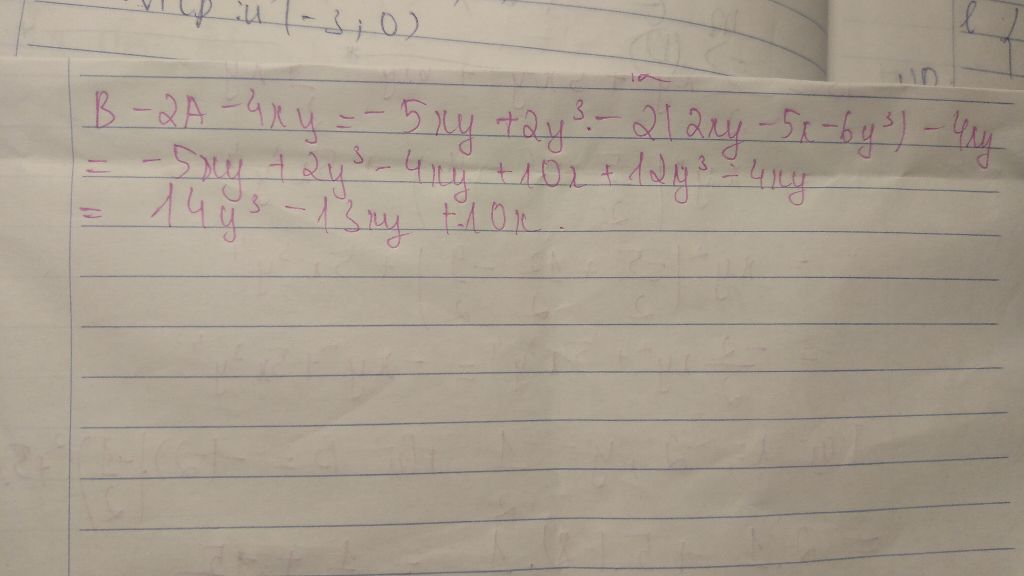 (-3; 0)
B - 2A - 4xy = - 5xy + 2y³. - 2(2xy - 5x - 6y³) - 4xy
= - 5xy + 2y³ - 4xy + 10x + 12y³ - 4xy
= 14y³ - 13xy + 10x.